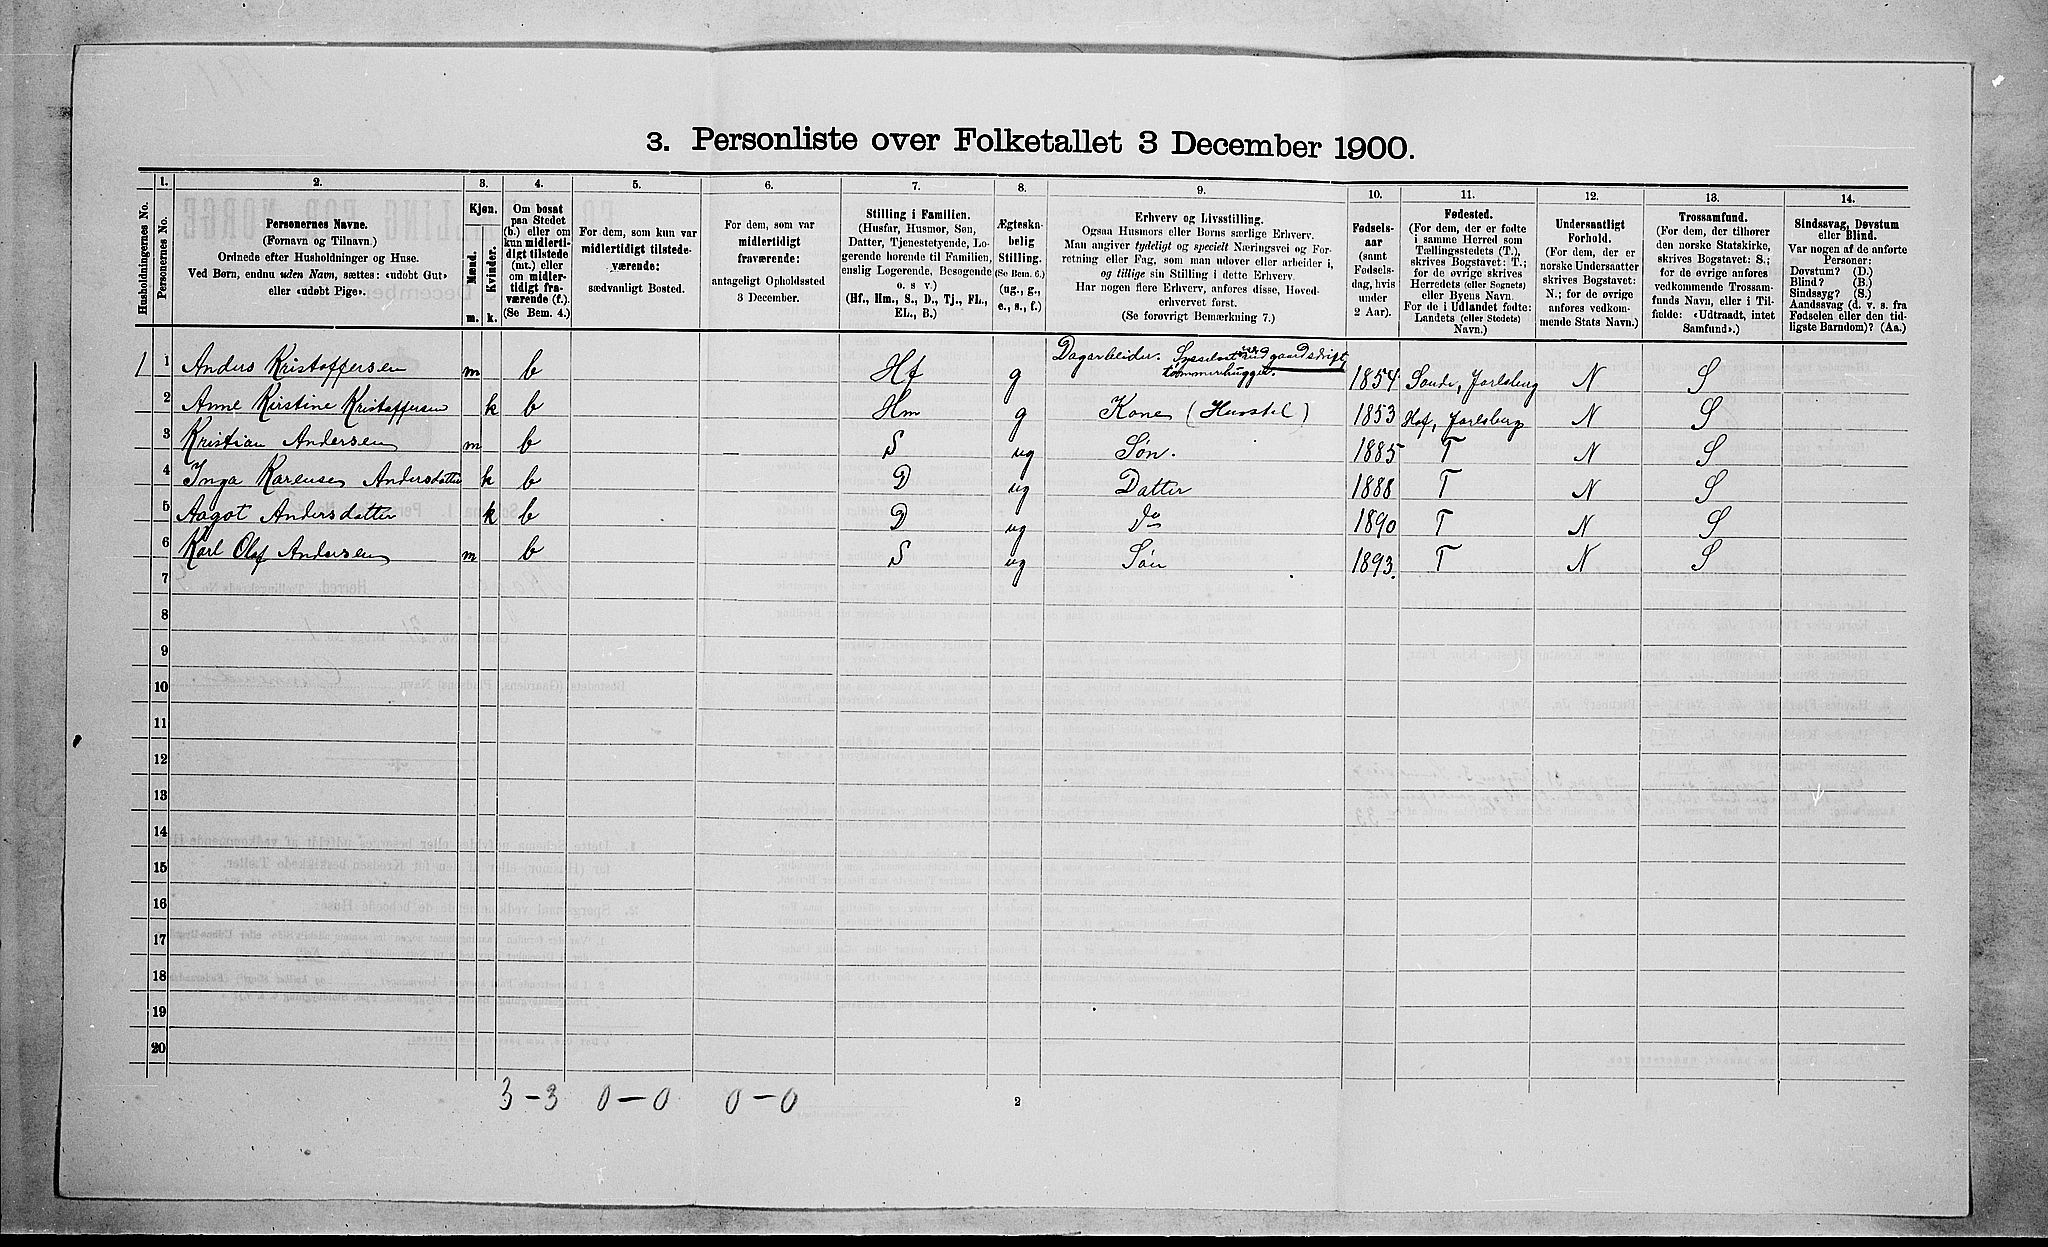 3. Personliste over Folketallet 3 December 1900.
Husholdningernes No.
1. Personernes No.
2. Personernes Navne.
(Fornavn og Tilnavn.)
Ordnede efter Husholdninger og Huse.
Ved Børn, endnu uden Navn, sættes: «udøbt Gut»
eller «udøbt Pige».
3. Kjøn.
Mænd. Kvinder.
m. k.
4. Om bosat
paa Stedet
(b.) eller om
kun midlerti-
digt tilstede
(mt.) eller
om midler-
tidigt fra-
værende (f.).
(Se Bem. 4.)
5. For dem, som kun var
midlertidigt tilstede-
værende:
sædvanligt Bosted.
6. For dem, som var
midlertidigt
fraværende:
antageligt Opholdssted
3 December.
7. Stilling i Familien.
(Husfar, Husmor, Søn,
Datter, Tjenestetyende, Lo-
gerende hørende til Familien,
enslig Logerende, Besøgende
o. s v.)
(Hf., Hm., S., D., Tj., FL.,
EL., B.)
8. Ægteska-
belig
Stilling.
(Se Bem. 6.)
(ug., g.,
e., s., f.)
9. Erhverv og Livsstilling.
Ogsaa Husmors eller Børns særlige Erhverv.
Man angiver tydeligt og specielt Næringsvei og For-
retning eller Fag, som man udøver eller arbeider i,
og tillige sin Stilling i dette Erhverv.
Har nogen flere Erhverv, anføres disse, Hoved-
erhvervet først.
(Se forøvrigt Bemærkning 7.)
10. Fødsels-
aar
(samt
Fødsels-
dag, hvis
under
2 Aar).
11. Fødested.
(For dem, der er fødte
i samme Herred som
Tællingsstedets (T.),
skrives Bogstavet: T.;
for de øvrige skrives
Herredets (eller Sognets)
eller Byens Navn.
For de i Udlandet fødte:
Landets (eller Stedets)
Navn.)
12. Undersaatligt
Forhold.
(For dem, der er
norske Undersaatter
skrives Bogstavet:
N.; for de øvrige
anføres vedkom-
mende Stats Navn.)
13. Trossamfund.
(For dem, der tilhører
den norske Statskirke,
skrives Bogstavet: S.;
for de øvrige anføres
vedkommende Trossam-
funds Navn, eller i Til-
fælde: «Udtraadt, intet
Samfund».)
14. Sindssvag, Døvstum
eller Blind.
Var nogen af de anførte
Personer:
Døvstum? (D.)
Blind? (B.)
Sindssyg? (S.)
Aandssvag (d. v. s. fra
Fødselen eller den tid-
ligste Barndom)? (Aa.)
1 1 Anders Kristoffersen m b Hf g Dagarbeider. Sysselsat ved gaardsdrift, tømmerhugget. 1854 Sande, Jarlsberg N S
2 Anne Kirstine Kristoffersen k b Hm g Kone (Husstel) 1853 Hof, Jarlsberg N S
3 Kristian Andersen m b S ug Søn. 1885 T N S
4 Inga Karense Andersdatter k b D ug Datter 1888 T N S
5 Aagot Andersdatter k b D ug Do 1890 T N S
6 Karl Olaf Andersen m b S ug Søn 1893. T N S
7
8
9
10
11
12
13
14
15
16
17
18
19
20
3 - 3 0 - 0 0 - 0
2